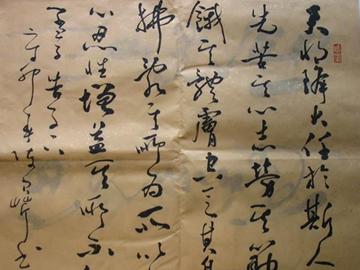 天將降大任於斯人
先苦其心志勞其筋
餓其體膚空乏其身
拂亂其所為所以
心忍性增益其所不
孟子告子下
书